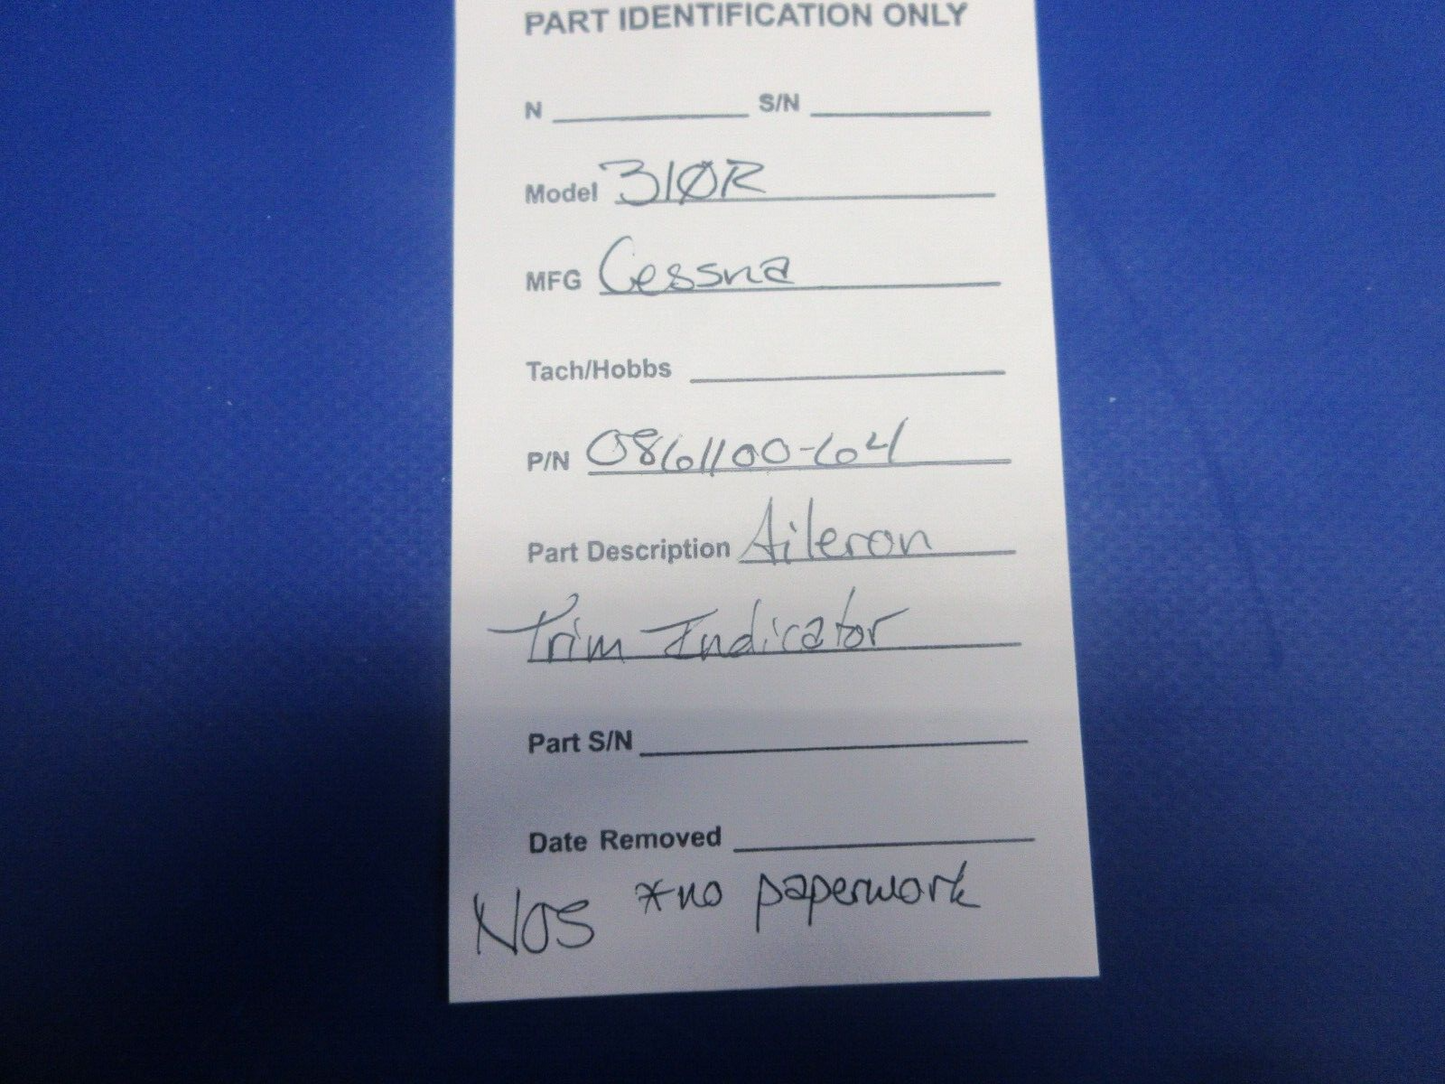 PART IDENTIFICATION ONLY
N S/N
Model 310R
MFG Cessna
Tach/Hobbs
P/N 0861100-64
Part Description Aileron
Trim Indicator
Part S/N
Date Removed
NOS *no paperwork